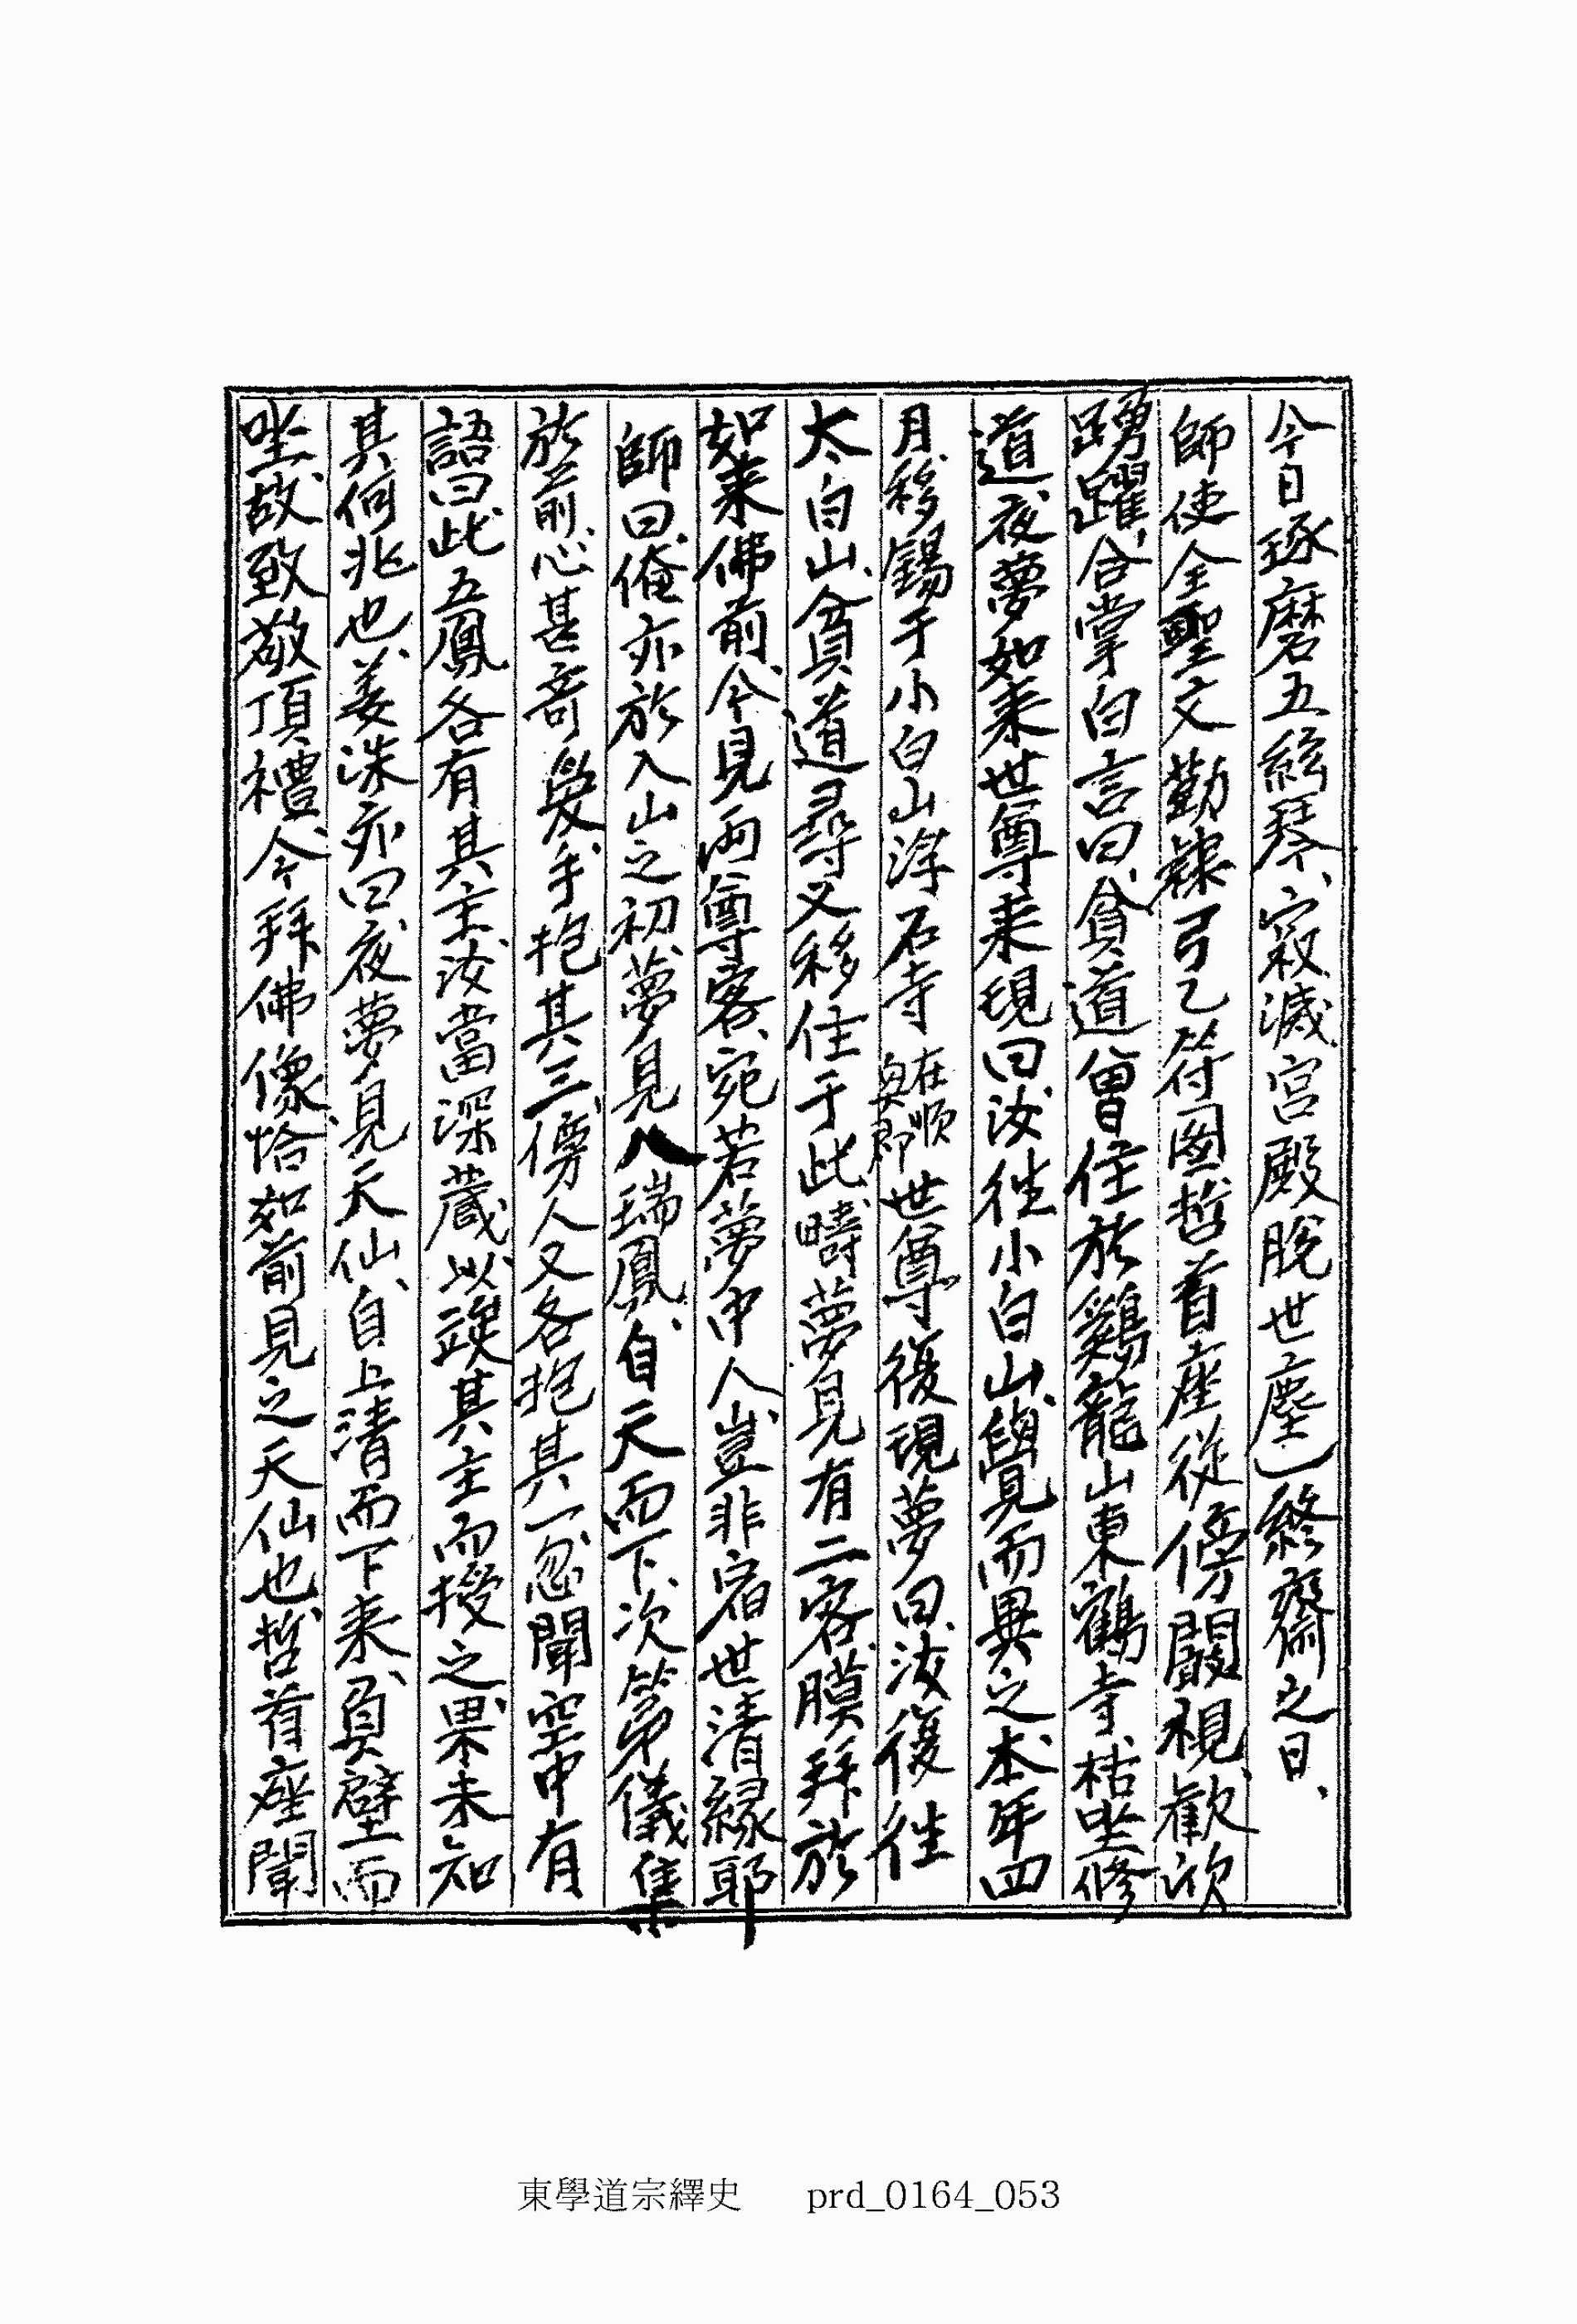 今日琢磨五絃琴、寂滅宮殿脫世塵)終齋之日、
師使全聖文勤隸弓乙符圖、哲首座從傍闞視、歡欣
踴躍、合掌白言曰、貧道曾住於鷄龍山東鶴寺、枯坐修
道、夜夢如来世尊来現曰、汝徃小白山、與覺而異之、本年四
月、移錫于小白山浮石寺 在順興郡 世尊復現夢曰、汝復徃
太白山、貧道尋又移住于此、疇夢見有二客、膜拜於
如来佛前、今見兩尊客、宛若夢中人、豈非宿世清緣耶
師曰、俺亦於入山之初、夢見八瑞鳳、自天而下、次第儀集
於前、心甚奇愛、手抱其三、傍人又各抱其一、忽聞空中有
語曰、此五鳳各有其主、汝當深藏、以竢其主而授之、果未知
其何兆也、姜洙亦曰、夜夢見天仙、自上清而下来、負壁而
坐、故致敬頂禮、今拜佛像、恰如前見之天仙也、哲首座聞
東學道宗繹史 prd_0164_053